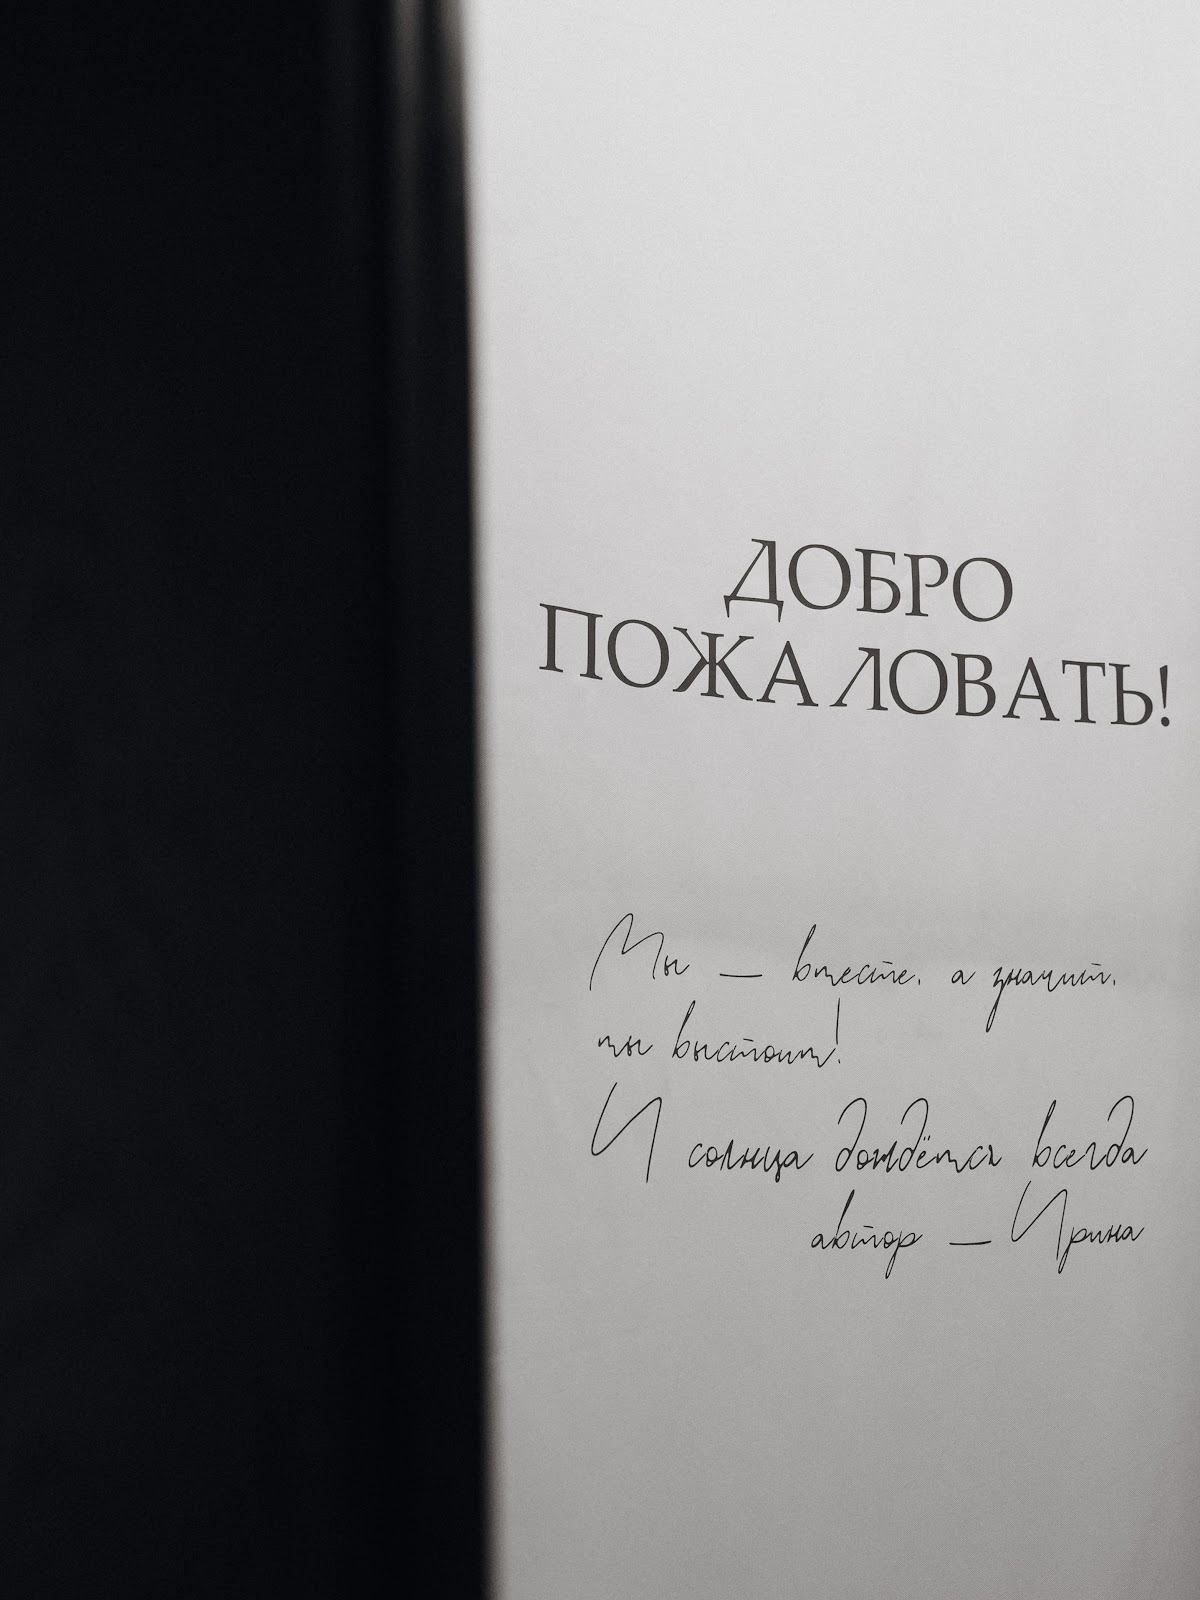 ДОБРО
ПОЖАЛОВАТЬ!
Мы — вместе, а значит,
мы выстоим!
И солнца дождётся всегда
автор — Ирина